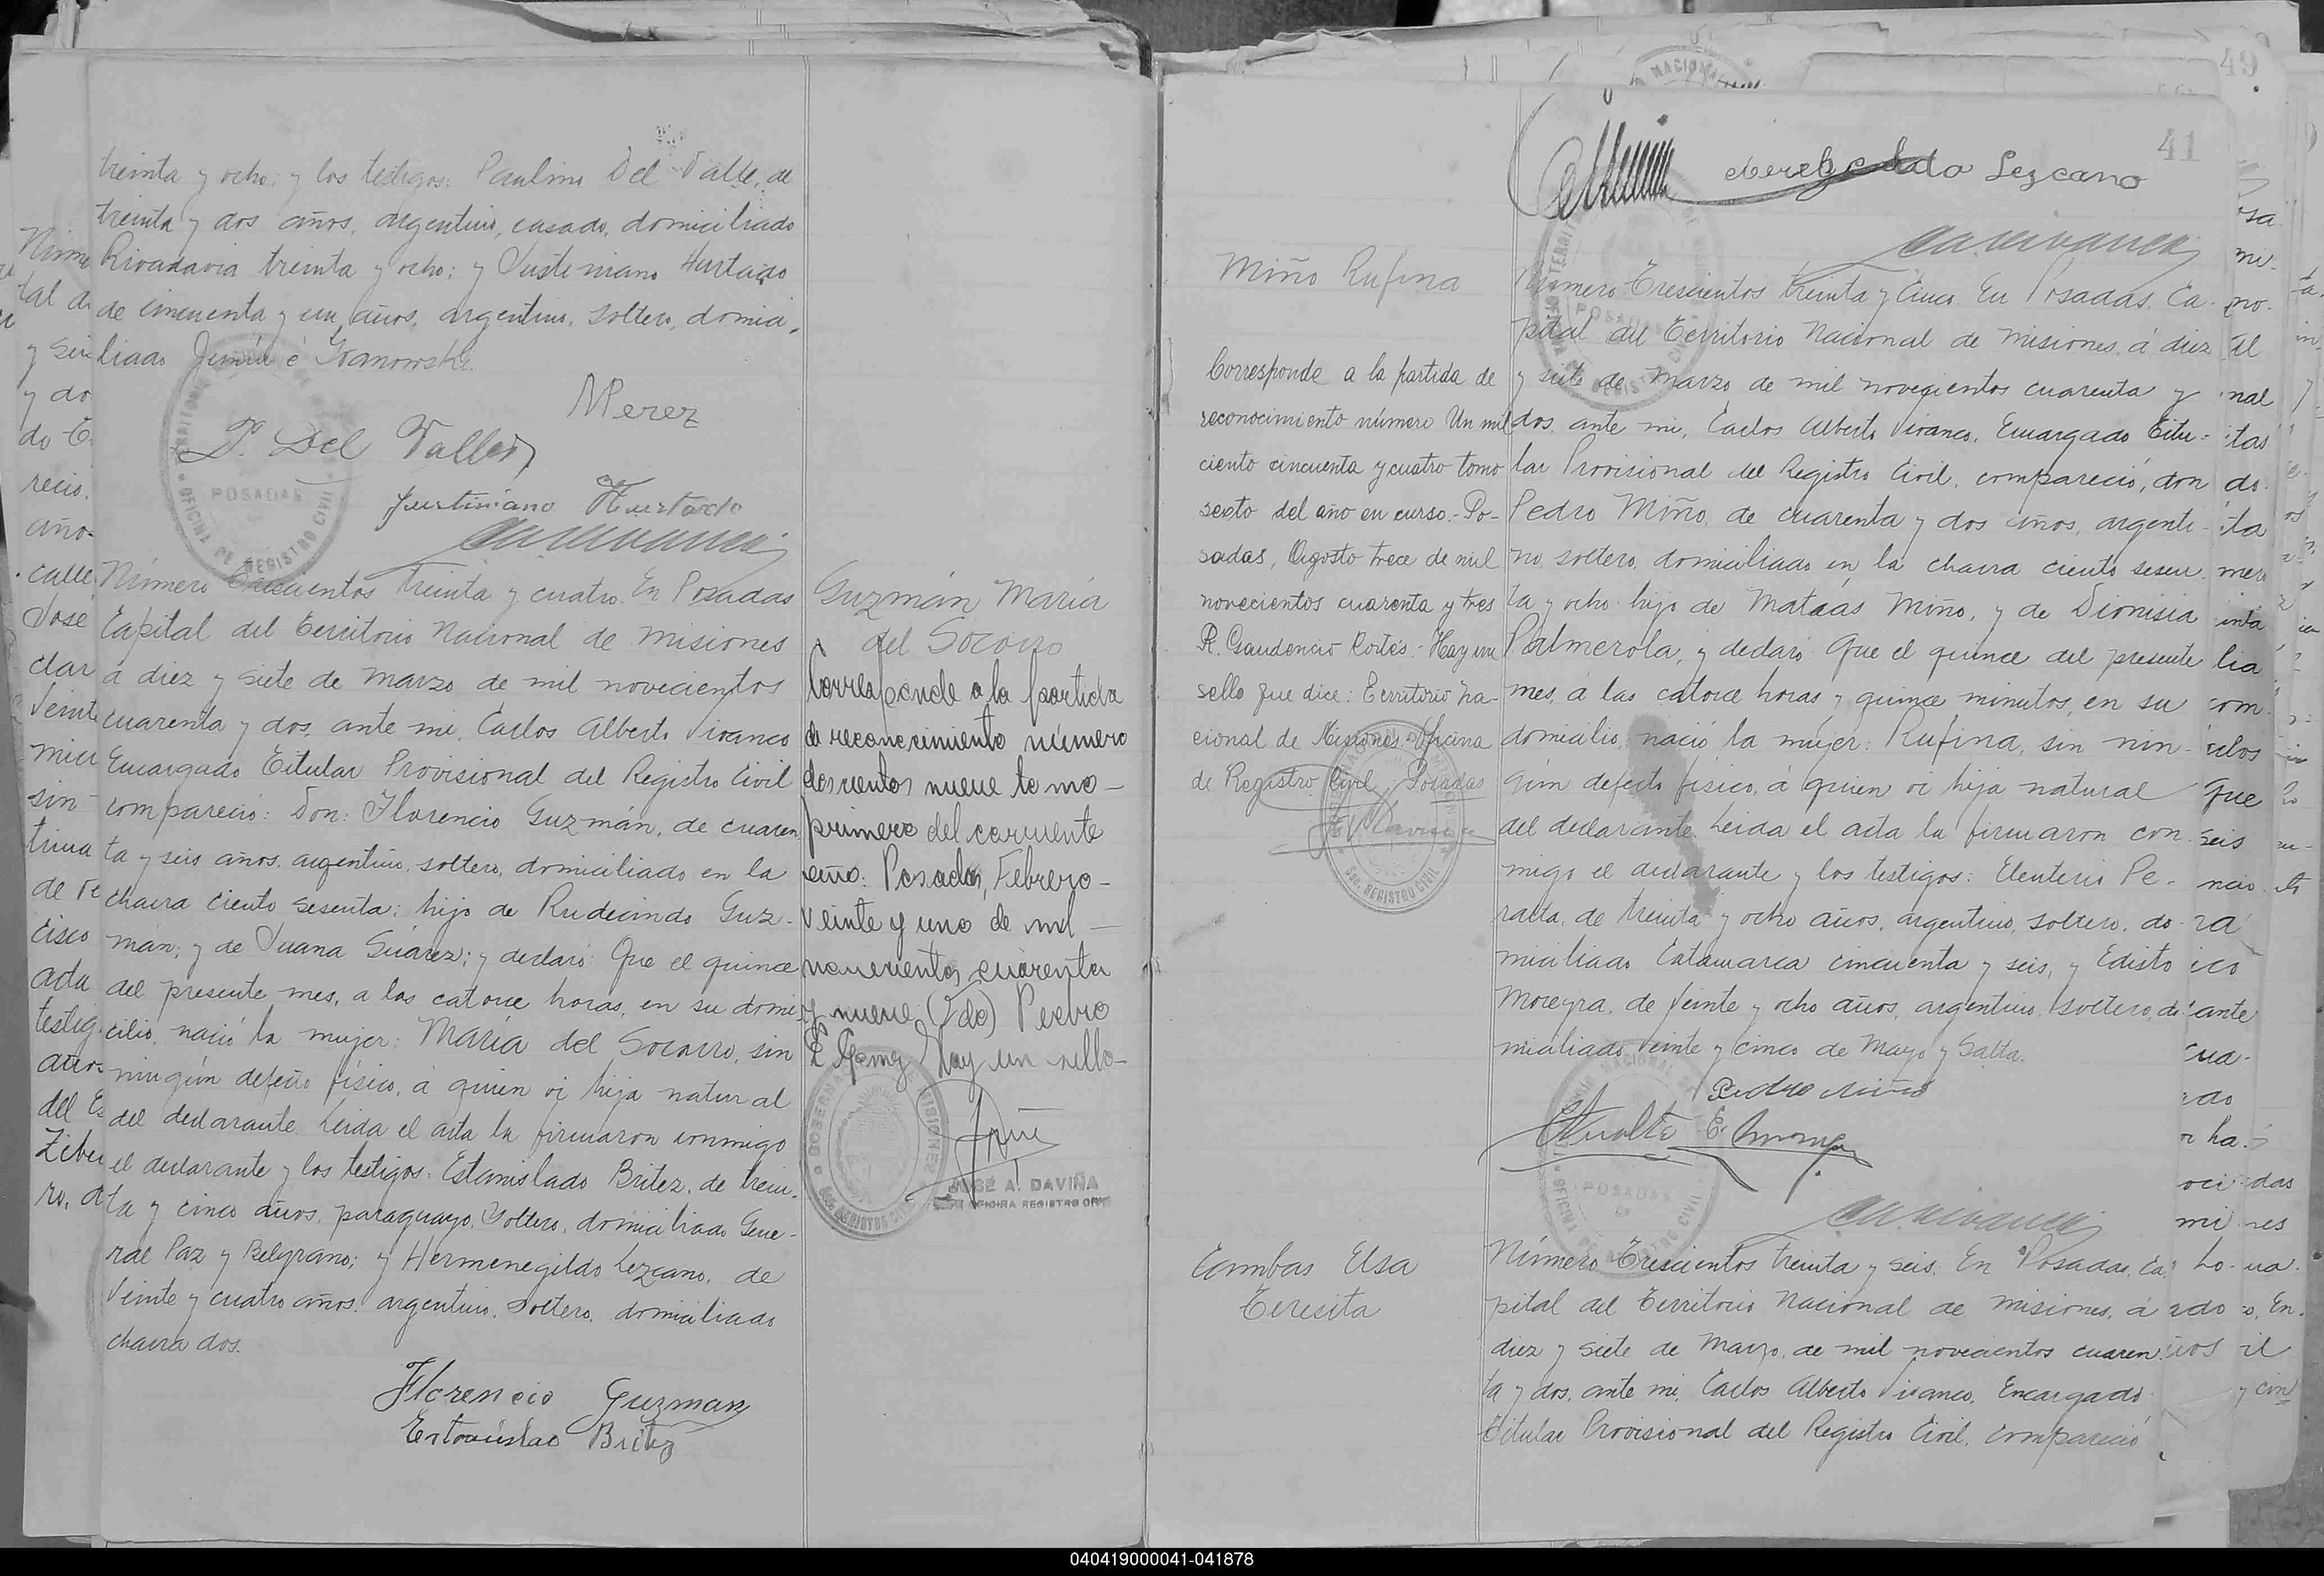 treinta y ocho; y los testigos: Paulino Del Valle, de
treinta y dos años, argentino, casado, domiciliado
Rivadavia treinta y ocho; y Justiniano Hurtado
de cincuenta y un años, argentino, soltero, domici,
liado Junín é Ivanowski.
MPerez
P. Del Valle
Justiniano Hurtado
Número Trescientos treinta y cuatro. En Posadas
Capital del Territorio Nacional de Misiones
á diez y siete de Marzo de mil novecientos
cuarenta y dos, ante mi, Carlos Alberto Vivanco
Encargado Titular Provisional del Registro Civil
compareció: Don: Florencio Guzmán, de cuaren
ta y seis años, argentino, soltero, domiciliado en la
chacra ciento sesenta; hijo de Rudecindo Guz-
mán; y de Juana Suárez; y declaró: Que el quince
del presente mes, a las catorce horas, en su domi-
cilio, nació la mujer: María del Socorro, sin
ningún defecto físico, á quien vi hija natural
del declarante. Leida el acta la firmaron conmigo
el declarante y los testigos: Estanislado Britez, de trein-
ta y cinco años, paraguayo, soltero, domiciliado Gene-
ral Paz y Belgrano; y Hermenegildo Lezcano, de
veinte y cuatro años, argentino, soltero, domiciliado
chacra dos.
Florencio Guzman
Estanislao Britez
Guzmán María
del Socorro
Corresponde a la partida
de reconocimiento número
doscientos nueve tomo-
primero del corriente
año: Posadas, Febrero-
veinte y uno de mil-
novecientos cuarenta
y nueve (Fdo) Pedro
E Gomez Hay un sello-
GOBERNACION DE MISIONES
JOSÉ A. DAVIÑA
JEFE OFICINA REGISTRO CIVIL
49
41
Hermenegildo Lezcano
Miño Rufina
Corresponde a la partida de
reconocimiento número Un mil
ciento cincuenta y cuatro tomo
sexto del año en curso.- Po-
sadas, Agosto trece de mil
novecientos cuarenta y tres
R. Gaudencio Cortés.- Hay un
sello que dice: Territorio Na-
cional de Misiones. Oficina
de Registro Civil Posadas
Número Trescientos treinta y cinco. En Posadas, Ca-
pital del Territorio Nacional de Misiones, á diez
y siete de Marzo de mil novecientos cuarenta y
dos, ante mi, Carlos Alberto Vivanco, Encargado Titu-
lar Provisional del Registro Civil, compareció, don
Pedro Miño, de cuarenta y dos años, argenti-
no, soltero, domiciliado en la chacra ciento sesen-
ta y ocho, hijo de Mataás Miño, y de Dionisia
Palmerola, y declaró: Que el quince del presente
mes, á las catorce horas y quince minutos, en su
domicilio, nació la mujer: Rufina, sin nin-
gún defecto físico, á quien vi hija natural
del declarante. Leida el acta la firmaron con-
migo el declarante y los testigos: Eleuterio Pe-
ralta, de treinta y ocho años, argentino, soltero, do-
miciliado Catamarca cincuenta y seis, y Edisto
Moreyra, de veinte y ocho años, argentino, soltero, do-
miciliado veinte y cinco de Mayo y Salta.
Pedro Miño
Cambas Elsa
Teresita
Número Trescientos treinta y seis. En Posadas, Ca-
pital del Territorio Nacional de Misiones, á
diez y siete de Marzo, de mil novecientos cuaren-
ta y dos, ante mi, Carlos Alberto Vivanco, Encargado
Titular Provisional del Registro Civil, compareció
040419000041-041878